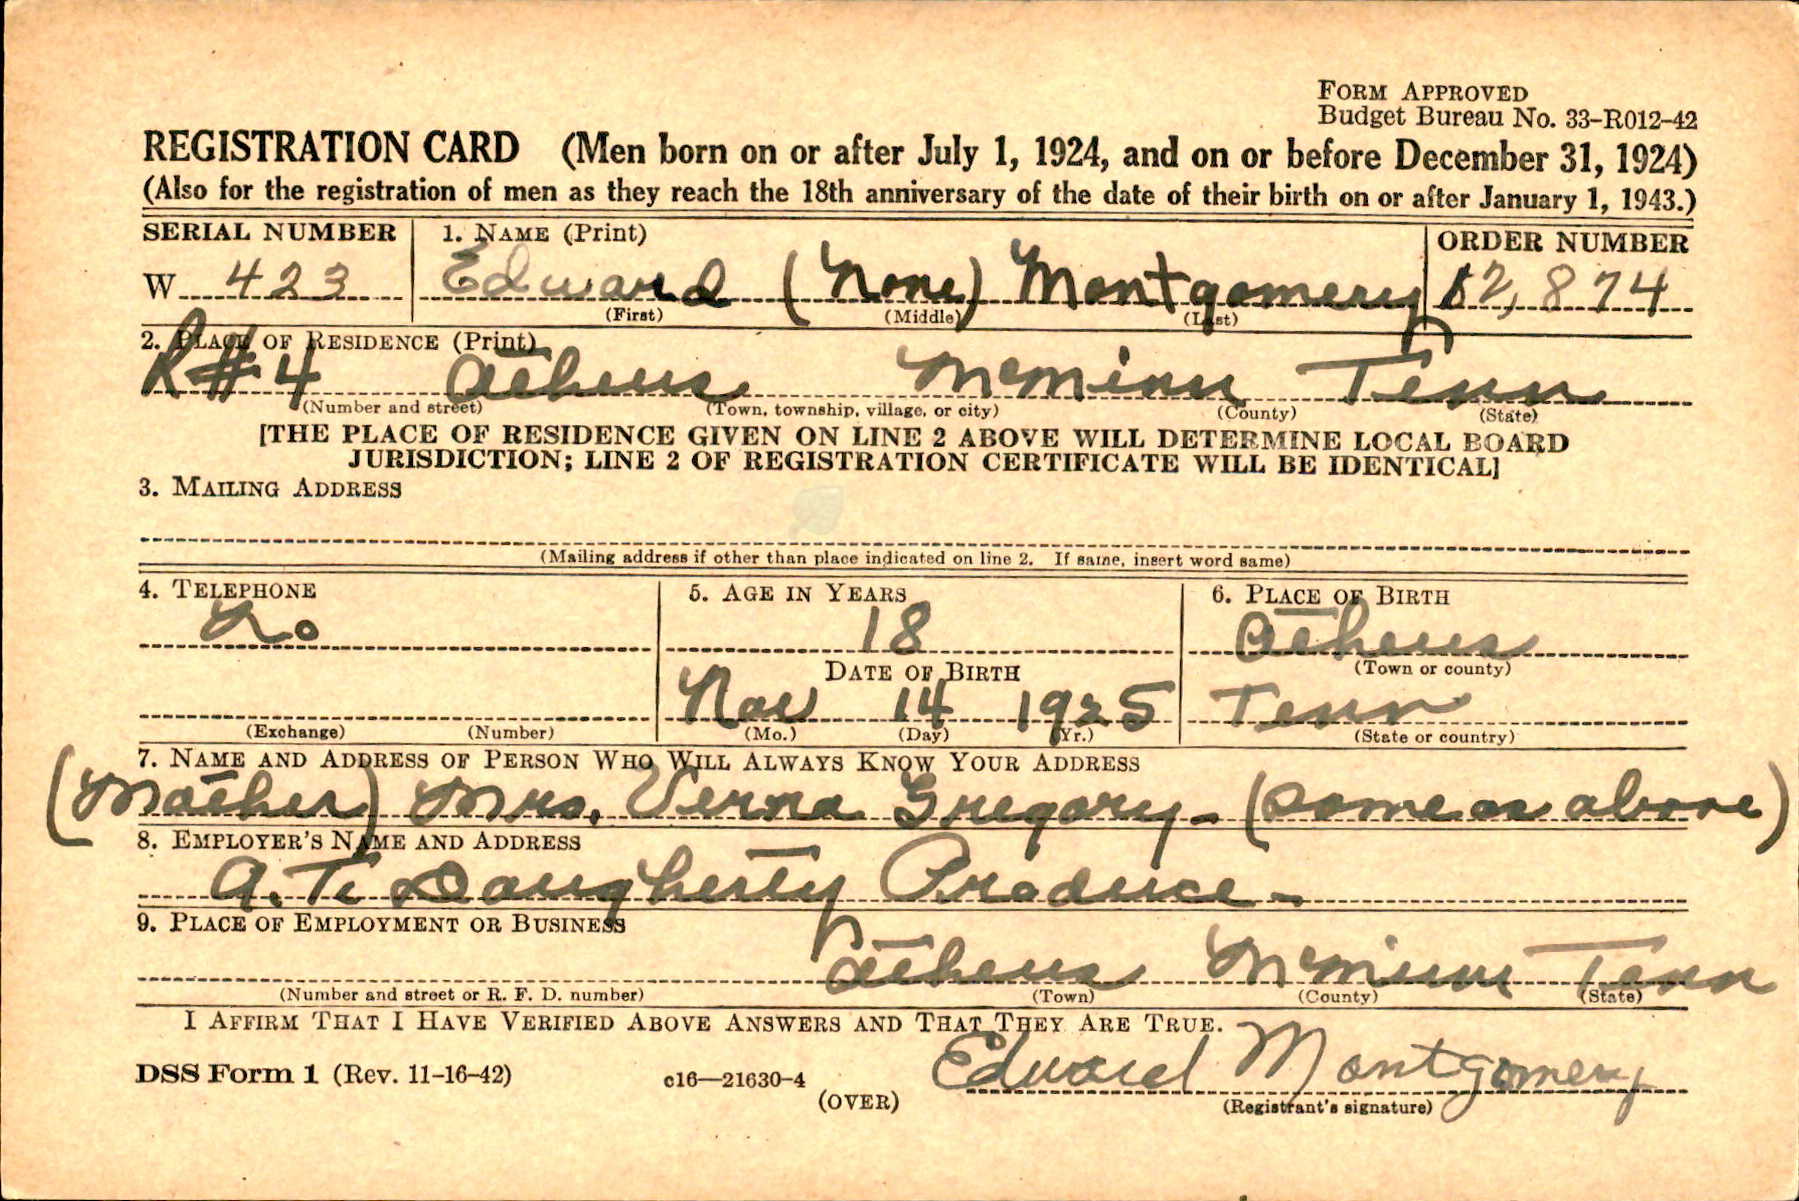 FORM APPROVED
Budget Bureau No. 33-R012-42
REGISTRATION CARD (Men born on or after July 1, 1924, and on or before December 31, 1924)
(Also for the registration of men as they reach the 18th anniversary of the date of their birth on or after January 1, 1943.)
SERIAL NUMBER 1. NAME (Print) ORDER NUMBER
W 423 Edward (None) Montgomery 12,874
(First) (Middle) (Last)
2. PLACE OF RESIDENCE (Print)
R#4 Athens McMinn Tenn
(Number and street) (Town, township, village, or city) (County) (State)
[THE PLACE OF RESIDENCE GIVEN ON LINE 2 ABOVE WILL DETERMINE LOCAL BOARD
JURISDICTION; LINE 2 OF REGISTRATION CERTIFICATE WILL BE IDENTICAL]
3. MAILING ADDRESS
(Mailing address if other than place indicated on line 2. If same, insert word same)
4. TELEPHONE 5. AGE IN YEARS 6. PLACE OF BIRTH
No 18 Athens
DATE OF BIRTH (Town or county)
Nov 14 1925 Tenn
(Exchange) (Number) (Mo.) (Day) (Yr.) (State or country)
7. NAME AND ADDRESS OF PERSON WHO WILL ALWAYS KNOW YOUR ADDRESS
(Mother) Mrs. Verna Gregory - (same as above)
8. EMPLOYER'S NAME AND ADDRESS
A. T. Daugherty Produce -
9. PLACE OF EMPLOYMENT OR BUSINESS
Athens McMinn Tenn
(Number and street or R. F. D. number) (Town) (County) (State)
I AFFIRM THAT I HAVE VERIFIED ABOVE ANSWERS AND THAT THEY ARE TRUE.
DSS Form 1 (Rev. 11-16-42) c16—21630-4 Edward Montgomery
(OVER) (Registrant's signature)